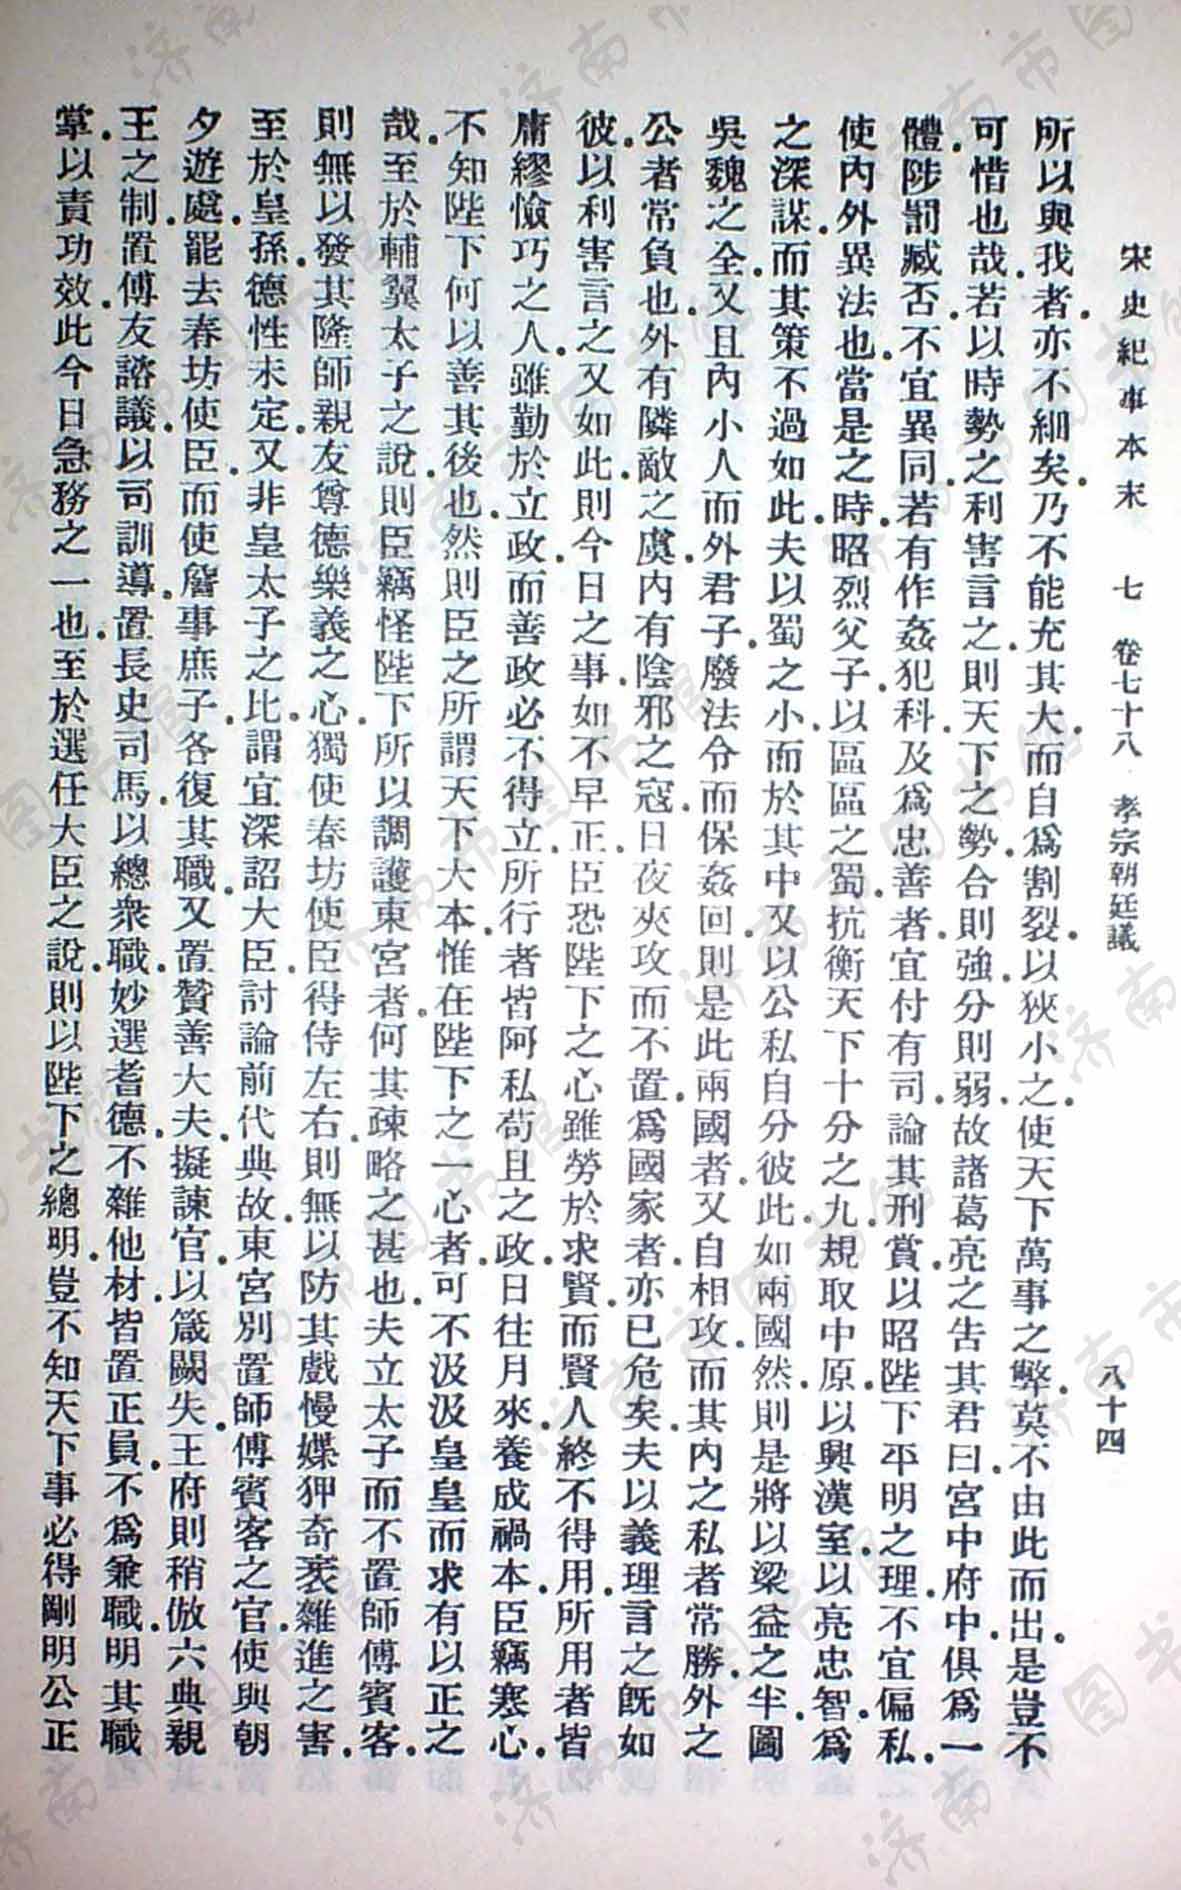 宋史紀事本末 七 卷七十八 孝宗朝廷議 八十四
所以與我者亦不細矣乃不能充其大而自爲割裂以狹小之使天下萬事之弊莫不由此而出是豈不
可惜也哉若以時勢之利害言之則天下之勢合則強分則弱故諸葛亮之告其君曰宮中府中俱爲一
體陟罰臧否不宜異同若有作姦犯科及爲忠善者宜付有司論其刑賞以昭陛下平明之理不宜偏私
使內外異法也當是之時昭烈父子以區區之蜀抗衡天下十分之九規取中原以興漢室以亮忠智爲
之深謀而其策不過如此夫以蜀之小而於其中又以公私自分彼此如兩國然則是將以梁益之半圖
吳魏之全又且內小人而外君子廢法令而保姦回則是此兩國者又自相攻而其內之私者常勝外之
公者常負也外有隣敵之虞內有陰邪之寇日夜夾攻而不置爲國家者亦已危矣夫以義理言之旣如
彼以利害言之又如此則今日之事如不早正臣恐陛下之心雖勞於求賢而賢人終不得用所用者皆
庸繆憸巧之人雖勤於立政而善政必不得立所行者皆阿私苟且之政日往月來養成禍本臣竊寒心
不知陛下何以善其後也然則臣之所謂天下大本惟在陛下之一心者可不汲汲皇皇而求有以正之
哉至於輔翼太子之說則臣竊怪陛下所以調護東宮者何其疎略之甚也夫立太子而不置師傅賓客
則無以發其隆師親友尊德樂義之心獨使春坊使臣得侍左右則無以防其戲慢媟狎奇衺雜進之害
至於皇孫德性未定又非皇太子之比謂宜深詔大臣討論前代典故東宮別置師傅賓客之官使與朝
夕遊處罷去春坊使臣而使詹事庶子各復其職又置贊善大夫擬諫官以箴闕失王府則稍倣六典親
王之制置傅友諮議以司訓導置長史司馬以總衆職妙選耆德不雜他材皆置正員不爲兼職明其職
掌以責功效此今日急務之一也至於選任大臣之說則以陛下之總明豈不知天下事必得剛明公正